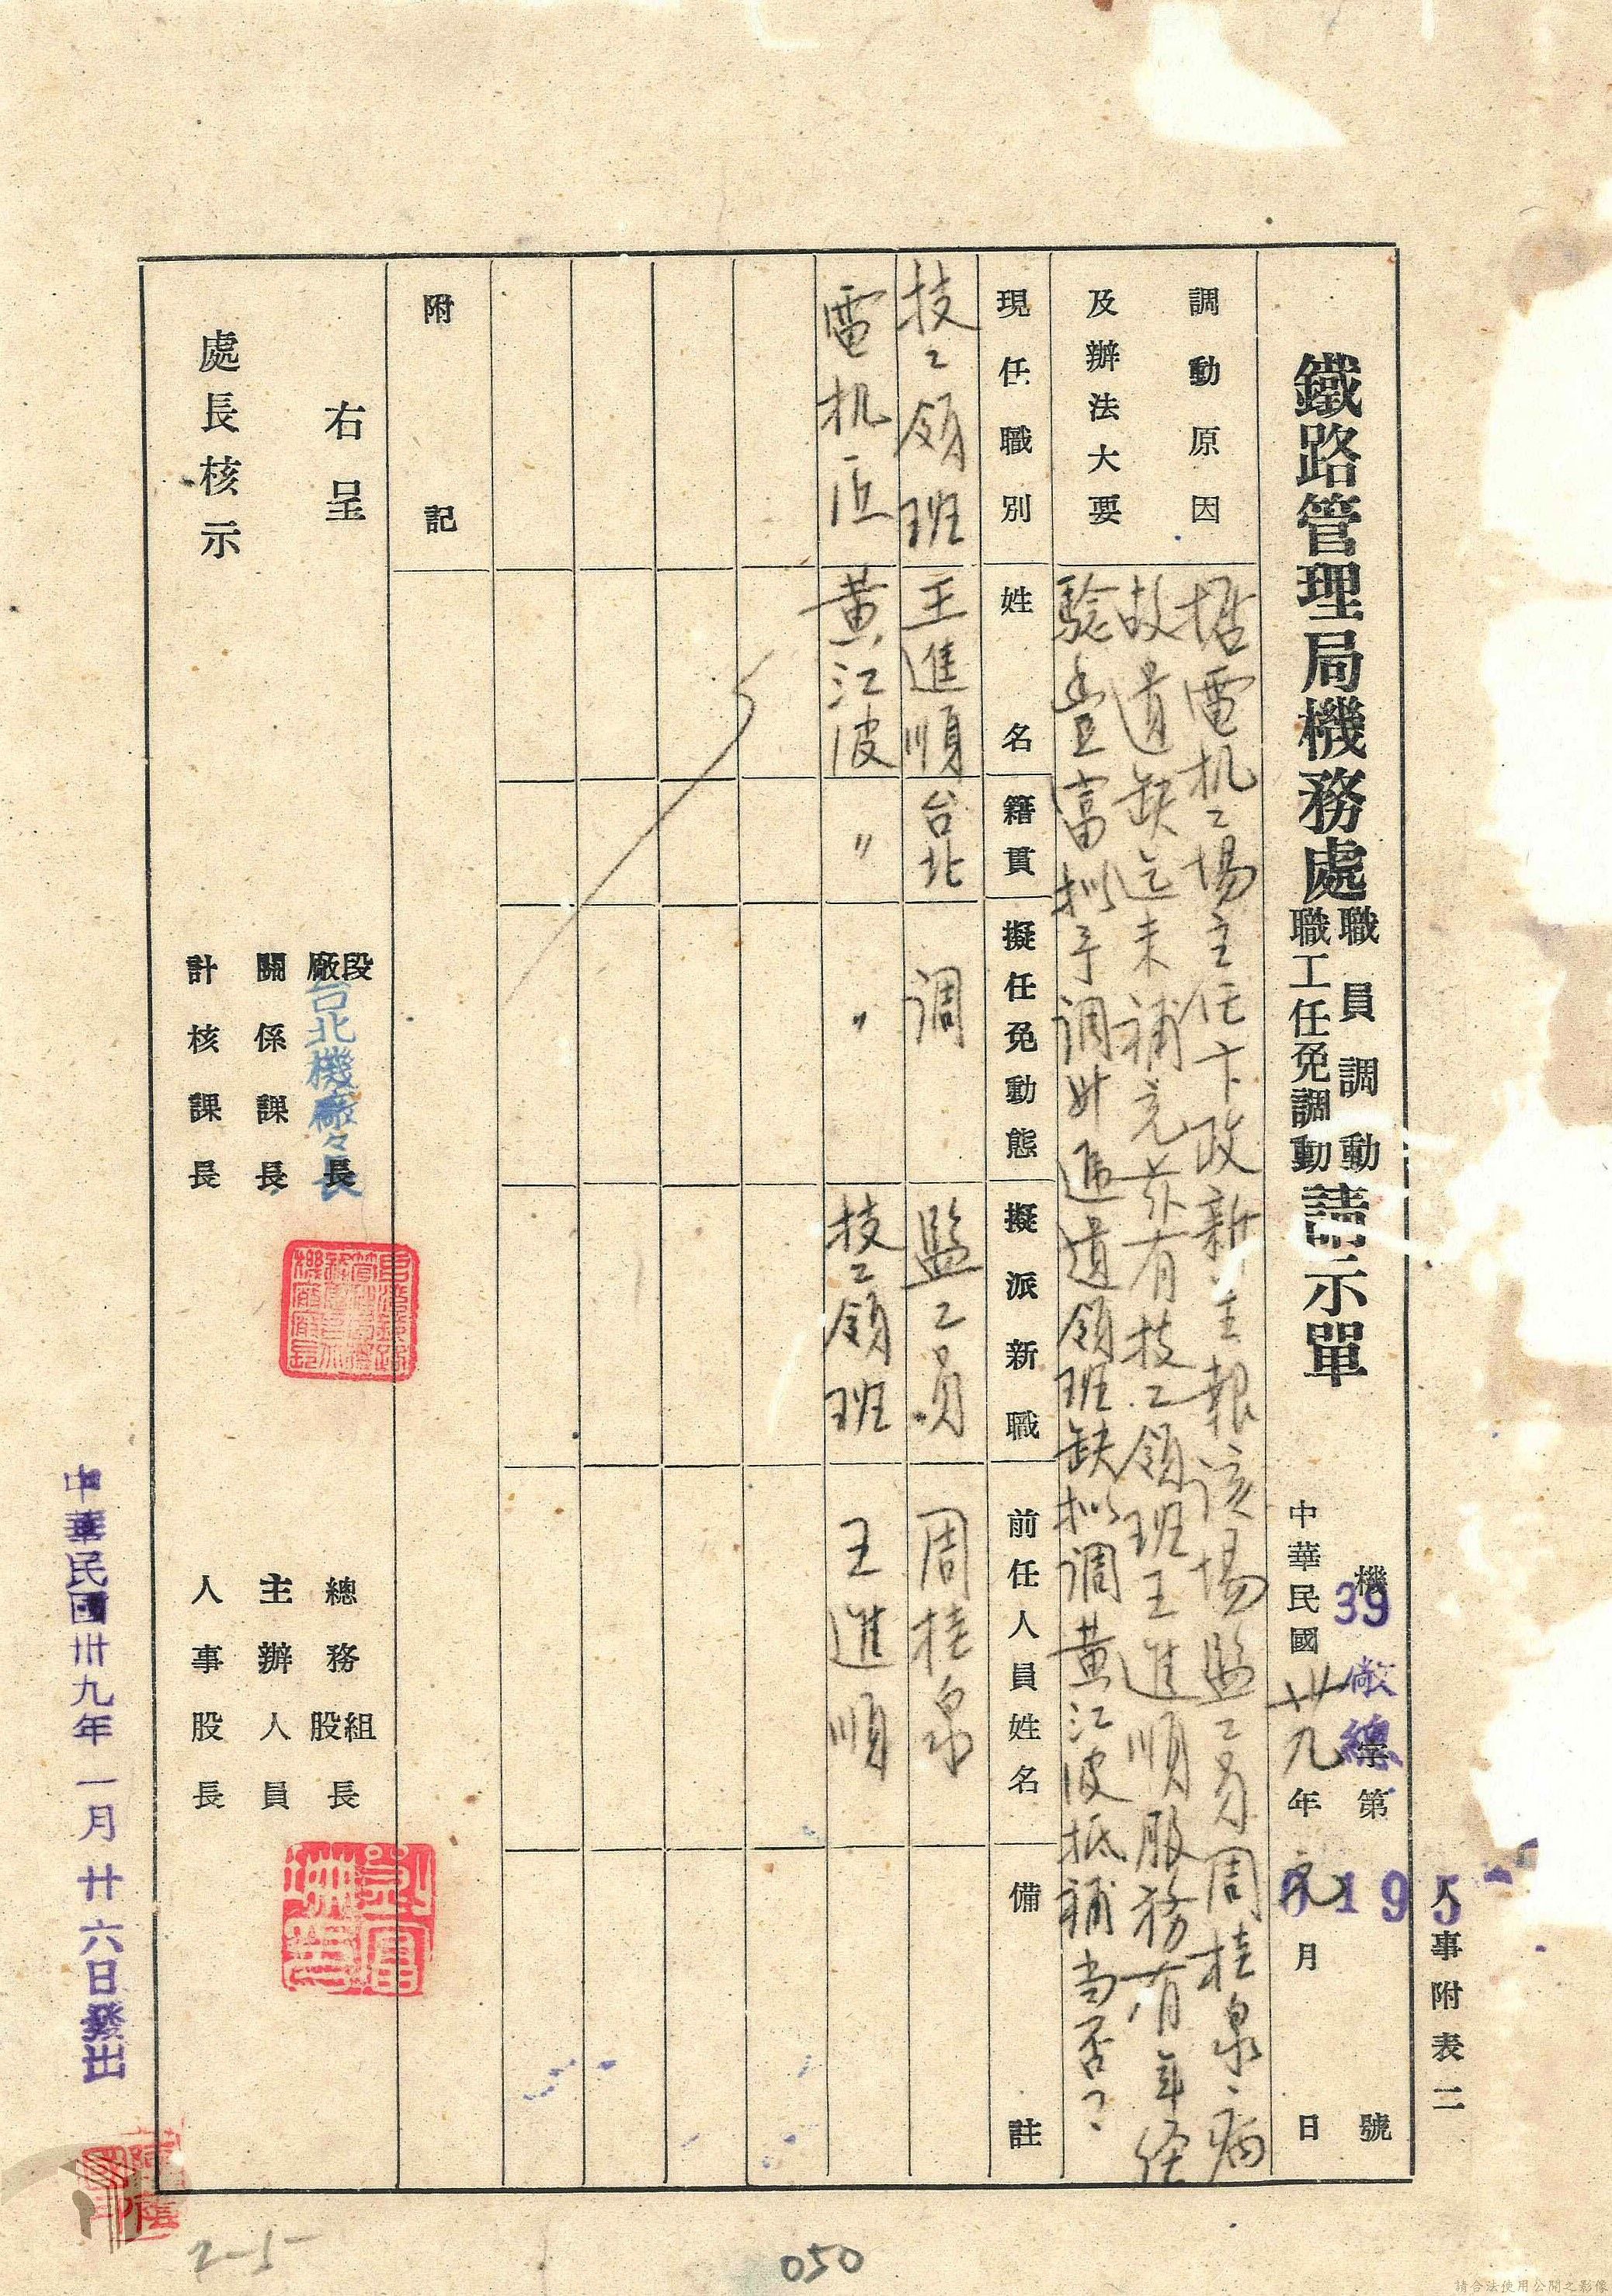 人事附表二
鐵路管理局機務處職員調動請示單
職工任免調動
機39廠總字第0195號
中華民國卅九年元月 日
調動原因
及辦法大要
据電机工場主任卞政新呈報該場監工員周桂泉病
故遺缺迄未補充茲有技工領班王進順服務有年經
驗豐富擬予調升遞遺領班缺拟調黃江波抵補當否？
現任職別 姓名 籍貫 擬任免動態 擬派新職 前任人員姓名 備註
技工領班 王進順 台北 调 監工員 周桂泉
電机匠 黃江波 〃 〃 技工領班 王進順
附記
右呈
處長核示
段廠長
台北機廠々長
關係課長
計核課長
總務組股長
主辦人員
人事股長
中華民國卅九年一月廿六日發出
2-5-
050
請合法使用公開之影像